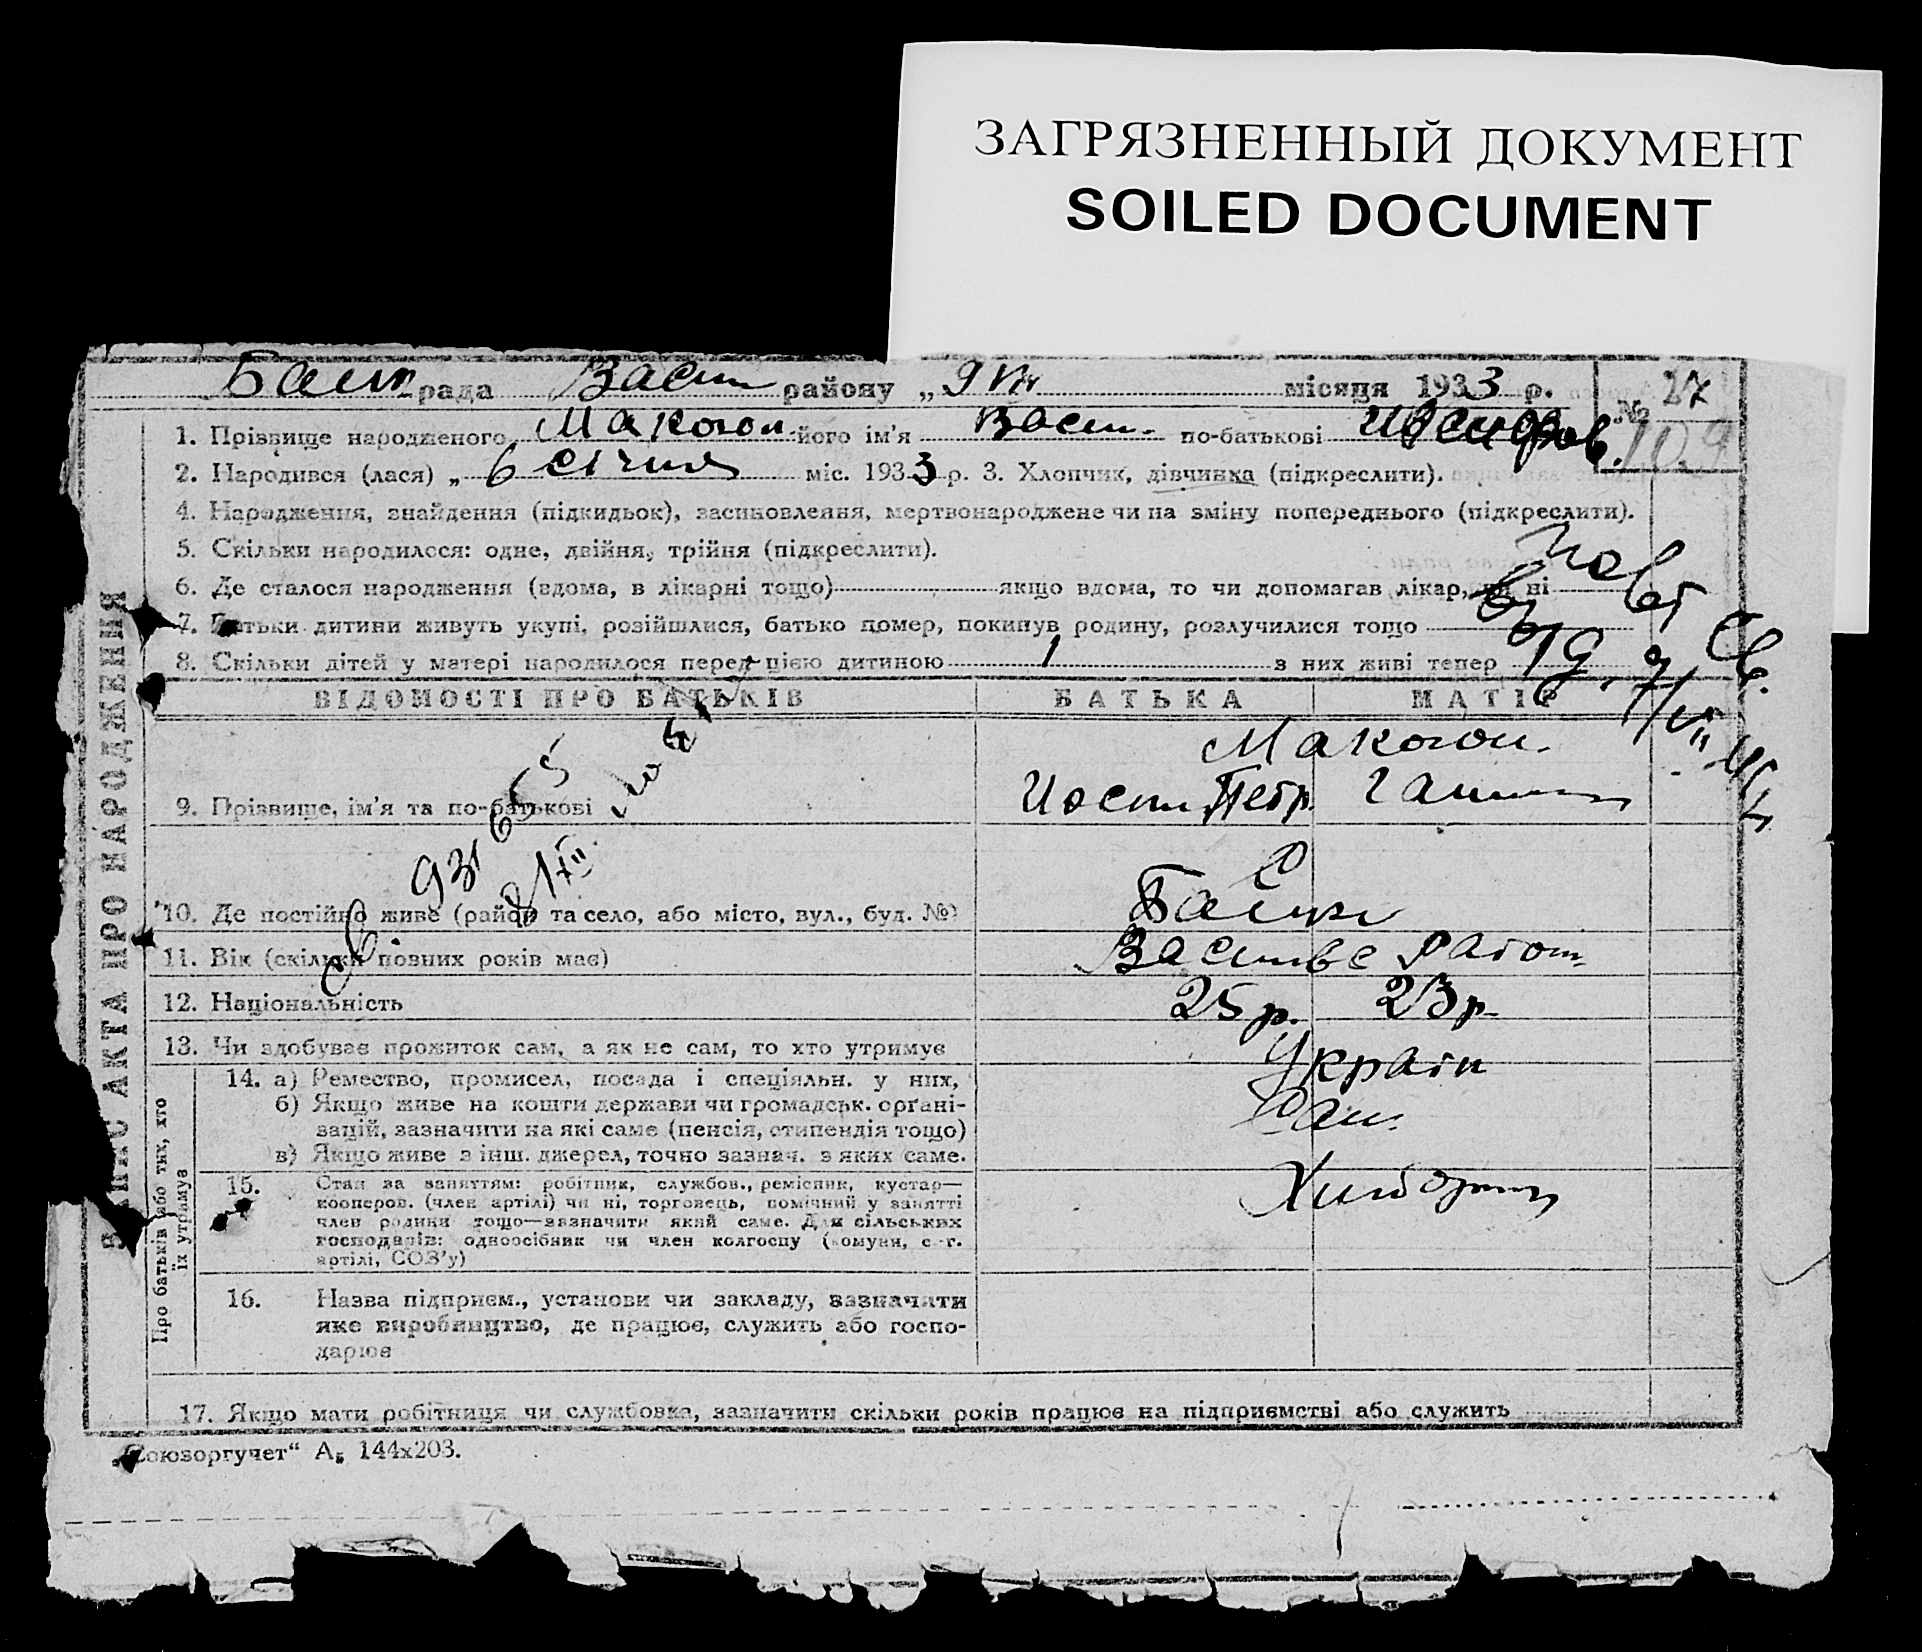 ЗАГРЯЗНЕННЫЙ ДОКУМЕНТ
SOILED DOCUMENT
рада району „ місяця 1933 р. № 27
1. Прізвище народженого Макогон його ім'я Васил. по-батькові
2. Народився (лася) „ 6 січня міс. 1933 р. 3. Хлопчик, дівчинка (підкреслити).
4. Народження, знайдення (підкидьок), засиновлення, мертвонароджене чи на зміну попереднього (підкреслити).
5. Скільки народилося: одне, двійня, трійня (підкреслити).
6. Де сталося народження (вдома, в лікарні тощо) якщо вдома, то чи допомагав лікар, чи ні
7. Батьки дитини живуть укупі, розійшлися, батько помер, покинув родину, розлучилися тощо
8. Скільки дітей у матері народилося перед цією дитиною 1 з них живі тепер
ЗАПИС АКТА ПРО НАРОДЖЕННЯ
ВІДОМОСТІ ПРО БАТЬКІВ БАТЬКА МАТІР
Макогон.
9. Прізвище, ім'я та по-батькові Петр.
10. Де постійно живе (район та село, або місто, вул., буд. №)
11. Вік (скільки повних років має)
12. Національність 25 р. 23 р.
13. Чи здобуває прожиток сам, а як не сам, то хто утримує
Україн
Сам.
Про батьків або тих, хто їх утримує
14. а) Ремество, промисел, посада і спеціяльн. у них,
б) Якщо живе на кошти держави чи громадськ. орґані-
зацій, зазначити на які саме (пенсія, стипендія тощо)
в) Якщо живе з інш. джерел, точно зазнач. з яких саме.
15. Стан за заняттям: робітник, службов., ремісник, кустар—
кооперов. (член артілі) чи ні, торговець, помічний у занятті
член родини тощо—зазначити який саме. Для сільських
господарів: одноосібник чи член колгоспу (комуни, с.-г.
артілі, СОЗ'у)
16. Назва підприєм., установи чи закладу, зазначити
яке виробництво, де працює, служить або госпо-
дарює
17. Якщо мати робітниця чи службовка, зазначити скільки років працює на підприємстві або служить
„Союзоргучет“ А₅ 144х203.